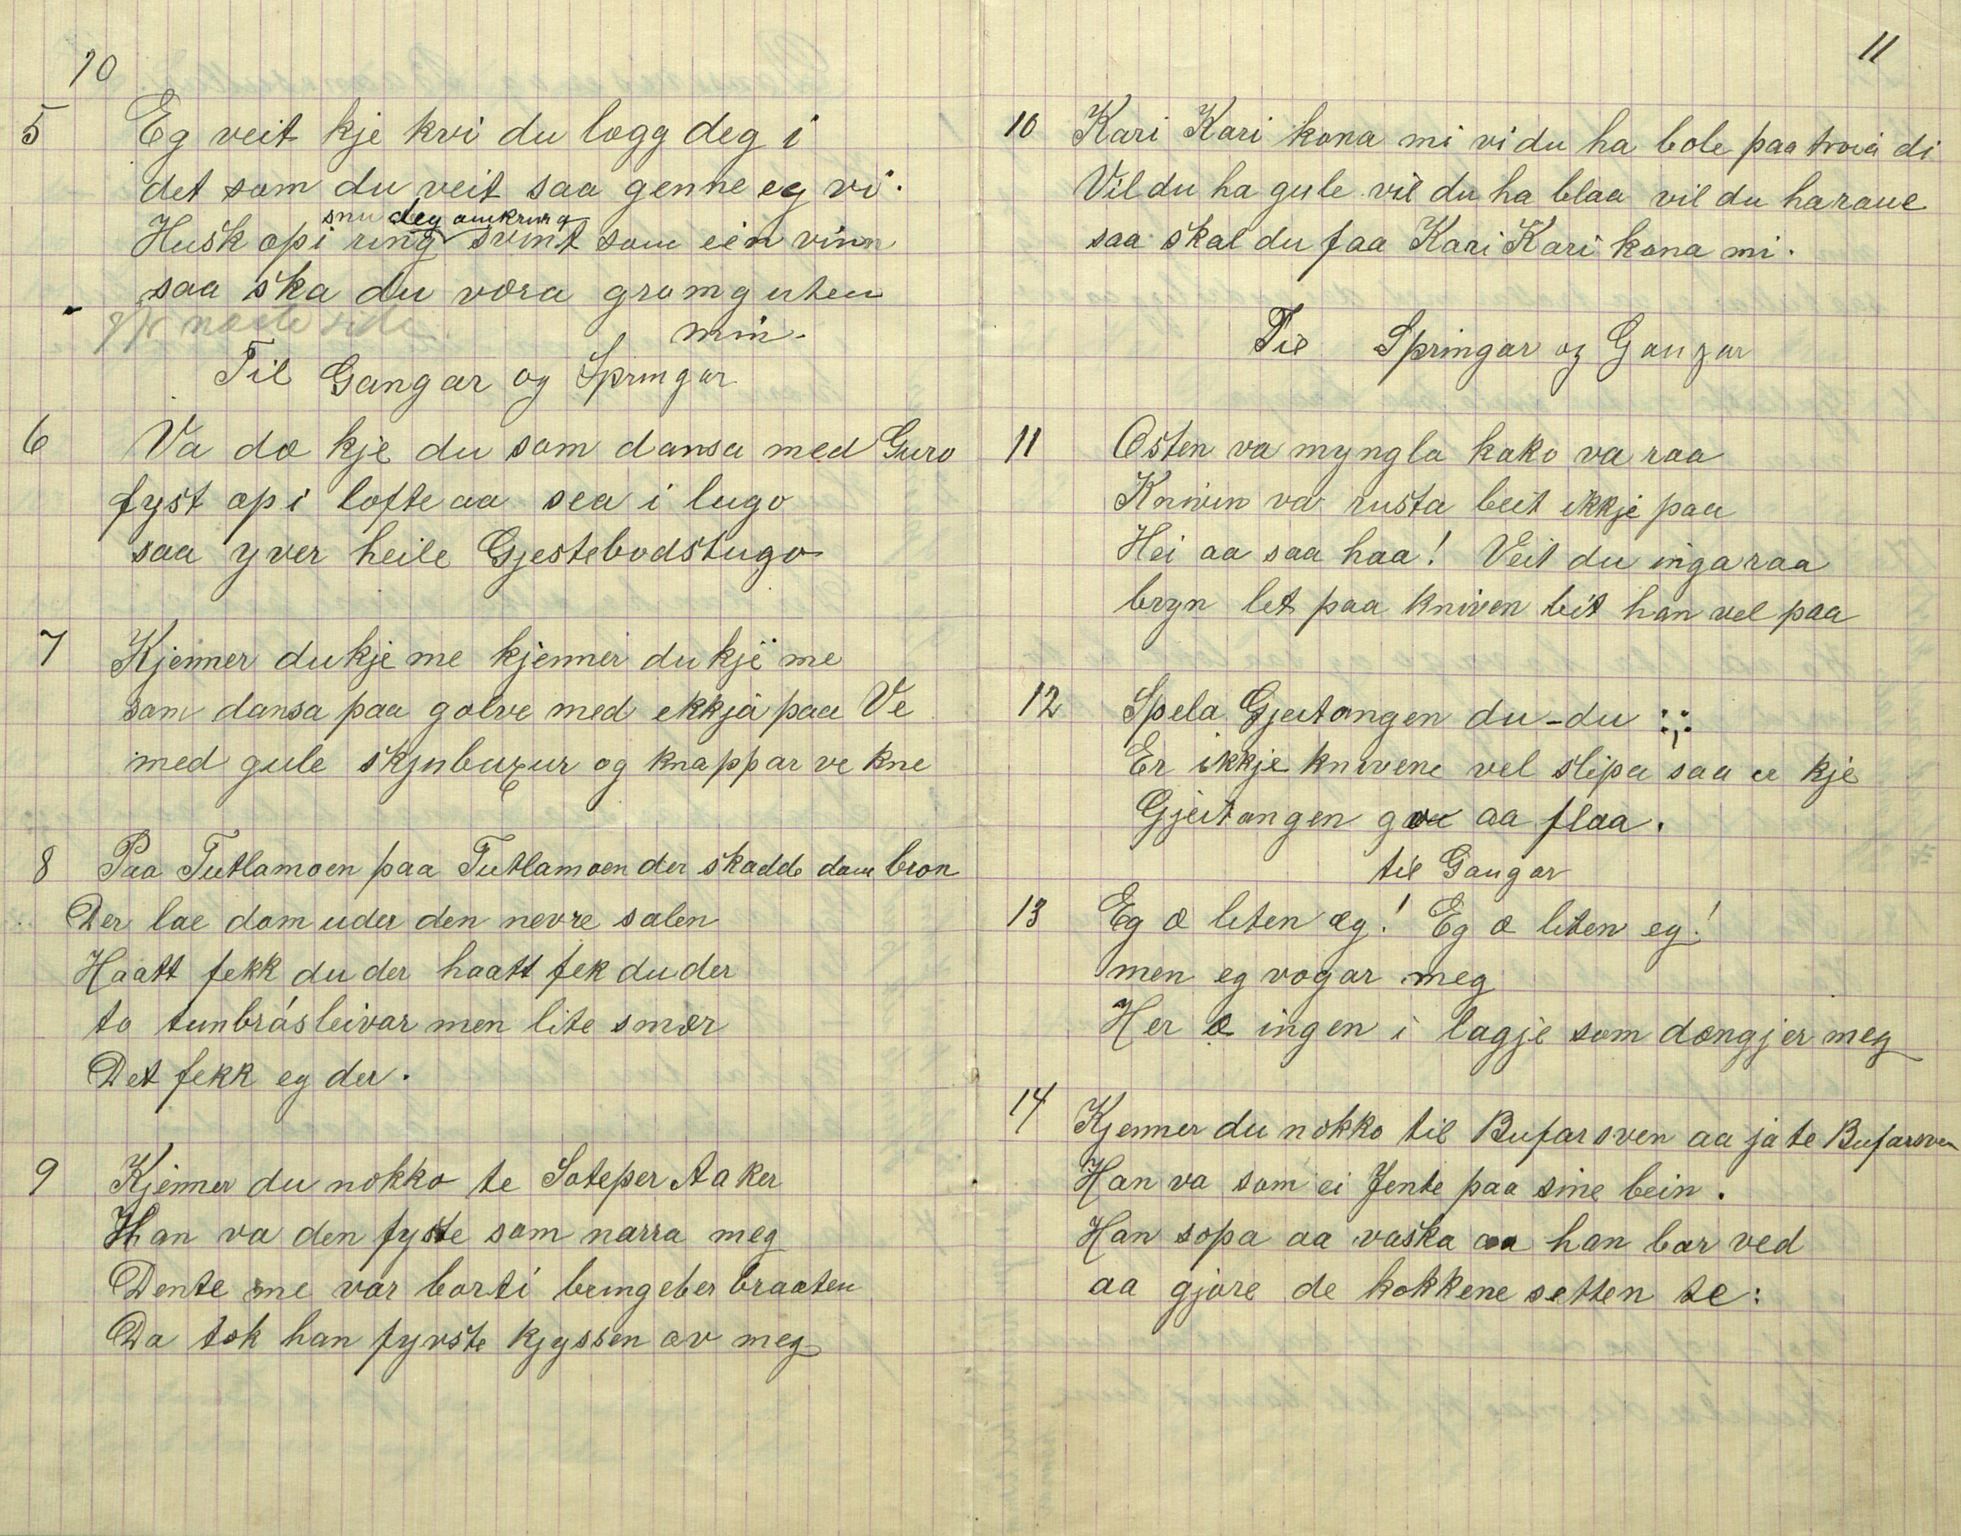 10
5 Eg veit kje kvi du lægg deg i
det som du veit saa genne eg vi.
snu deg omkring
Husk op i ring svint som ein vinn
saa ska du væra gromguten
min.
næste side.
Til Gangar og Springar
6 Va dæ kje du som dansa med Guro
fyst op i lofte aa sea i lugo
saa yver heile Gjestebodstugo
7 Kjenner du kje me kjenner du kje me
som dansa paa golve med ekkja paa Ve
med gule skjnbuxur og knappar ve kne
8 Paa Tutlamoen paa Tutlamoen der skadde dom bron
Der lae dom uder den nevre salen
Haatt fekk du der haatt fek du der
to tunbrásleivar men lite smør
Det fekk eg der.
9 Kjenner du nokko te Soteper Aaker
Han va den fyste som narra meg
Dente me var borti bringeber braaten
Da tok han fyrste kjyssen av meg
11
10 Kari Kari kona mi vi du ha bole paa troia di
Vil du ha gule vil du ha blaa vil du ha raue
saa skal du faa Kari Kari kona mi.
Til Springar og Gangar
11 Osten va myngla kako va raa
Kniven va rusta beit ikkje paa
Hei aa saa haa! Veit du inga raa
bryn let paa kniven bit han vel paa
12 Spela Gjeitongen du - du :,:
Er ikkje knivene vel slipa saa er kje
Gjeitongen go aa flaa.
til Gangar
13 Eg æ liten eg! Eg æ liten eg!
men eg vogar meg
Her æ ingen i lagje som dængjer meg
14 Kjenner du nokko til Bufarsven aa ja te Bufarsven
Han va som ei Jente paa sine bein.
Han sopa aa vaska aa han bar ved
aa gjore de kokkene setten te: